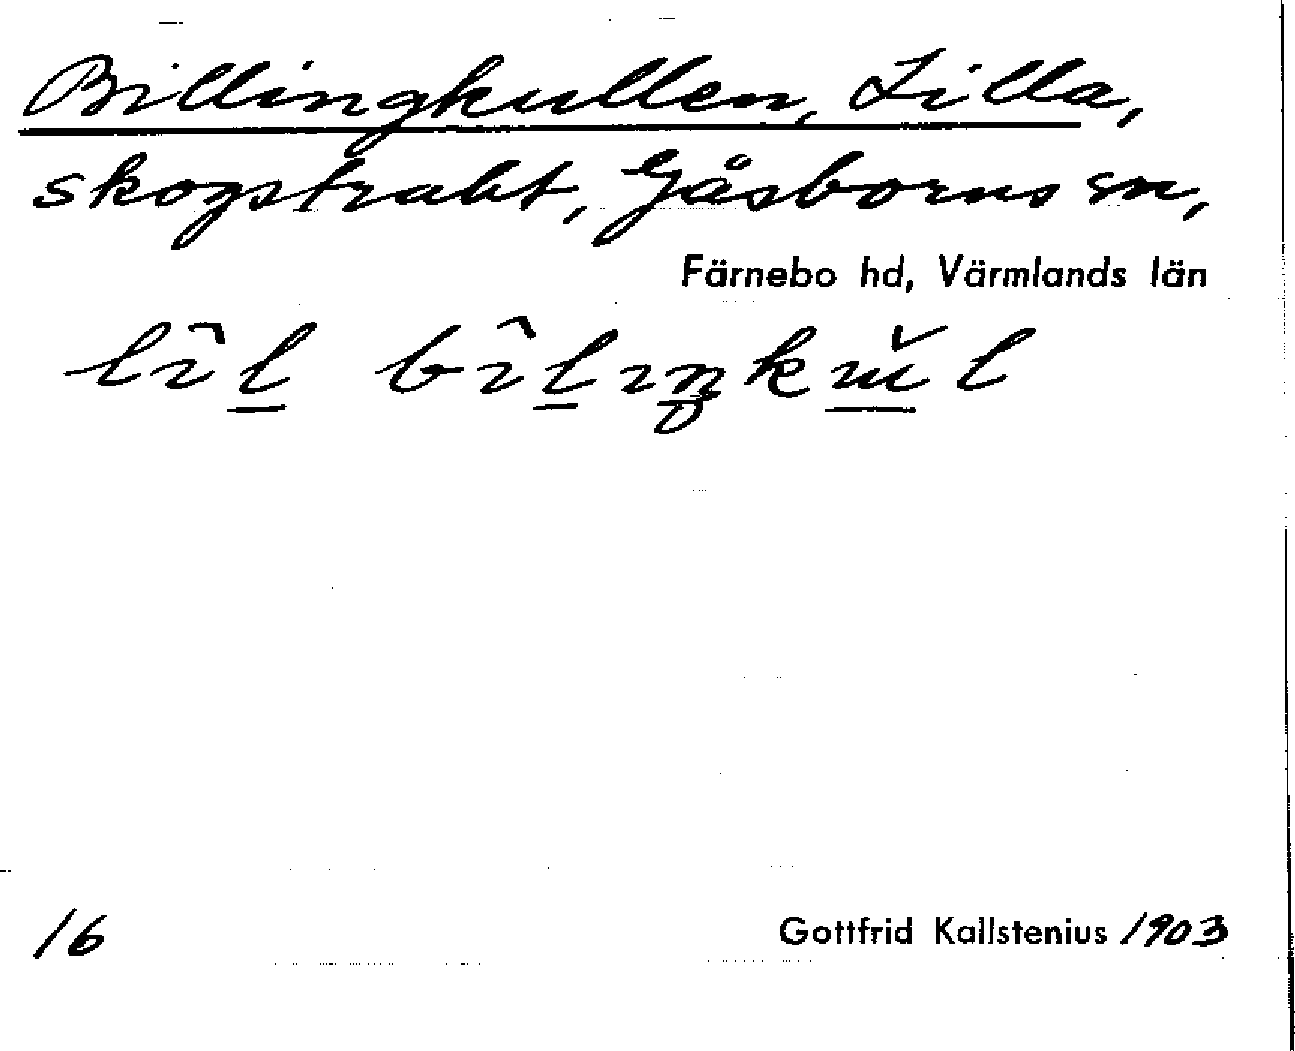 Billingkullen, Lilla,
skogstrakt, Gåsborns sn,
Färnebo hd, Värmlands län
lîl̲ bîl̲ıŋkŭ̲l
16 Gottfrid Kallstenius 1903